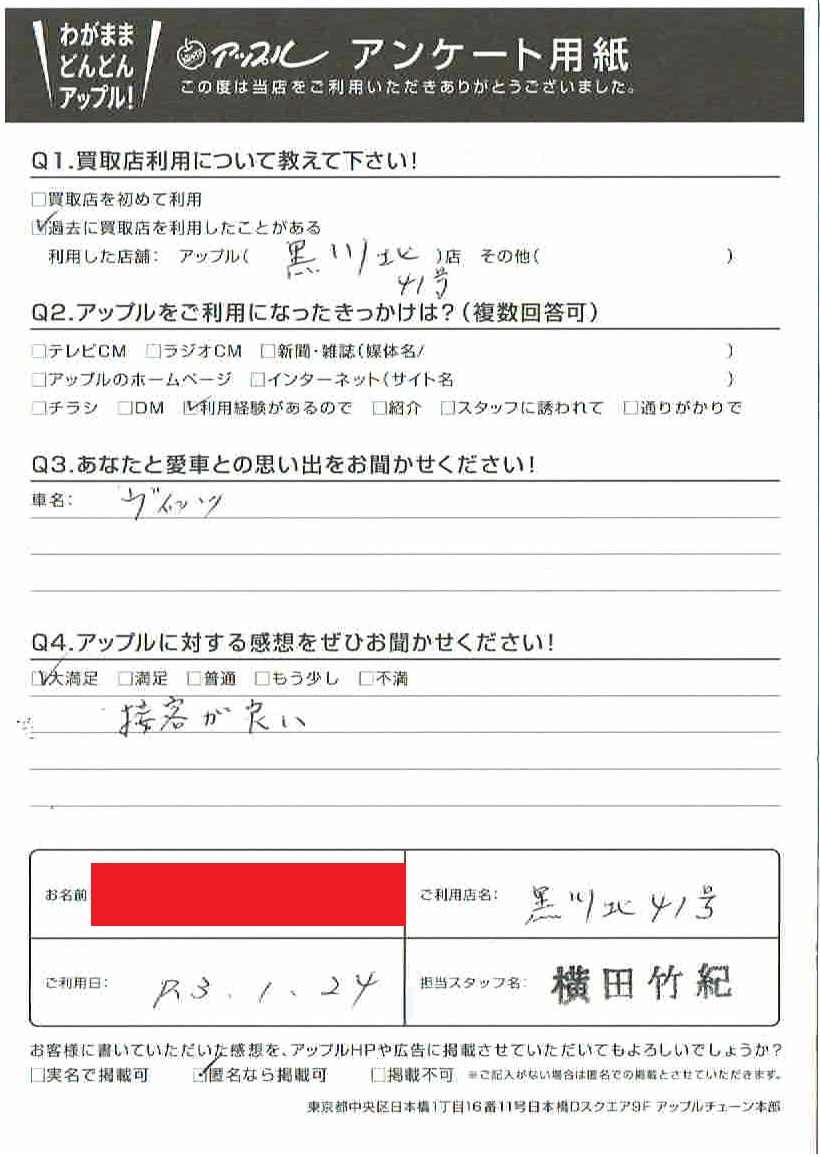 わがまま
どんどん
アップル!
アップル アンケート用紙
この度は当店をご利用いただきありがとうございました。
Q1.買取店利用について教えて下さい!
□買取店を初めて利用
☑過去に買取店を利用したことがある
利用した店舗: アップル( 黒川北41号 )店 その他( )
Q2.アップルをご利用になったきっかけは?(複数回答可)
□テレビCM □ラジオCM □新聞・雑誌(媒体名/ )
□アップルのホームページ □インターネット(サイト名 )
□チラシ □DM ☑利用経験があるので □紹介 □スタッフに誘われて □通りがかりで
Q3.あなたと愛車との思い出をお聞かせください!
車名: ヴィッツ
Q4.アップルに対する感想をぜひお聞かせください!
☑大満足 □満足 □普通 □もう少し □不満
接客が良い
お名前: ご利用店名: 黒川北41号
ご利用日: R3.1.24 担当スタッフ名: 横田竹紀
お客様に書いていただいた感想を、アップルHPや広告に掲載させていただいてもよろしいでしょうか?
□実名で掲載可 ☑匿名なら掲載可 □掲載不可 ※ご記入がない場合は匿名での掲載とさせていただきます。
東京都中央区日本橋1丁目16番11号日本橋Dスクエア9F アップルチェーン本部